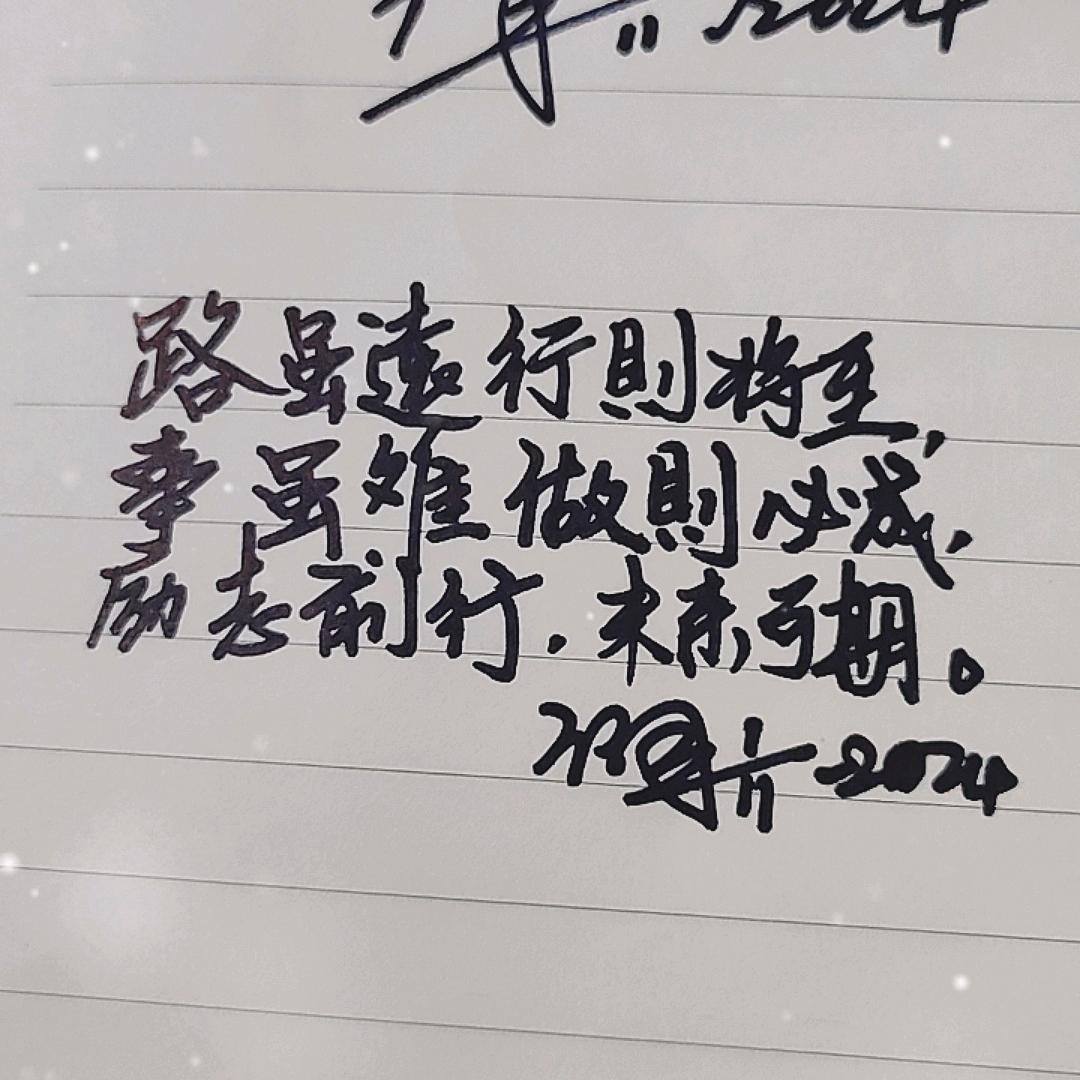 2024
路虽遠行則将至,
事虽难做則必成,
励志前行.未来可期。
1/11 2024